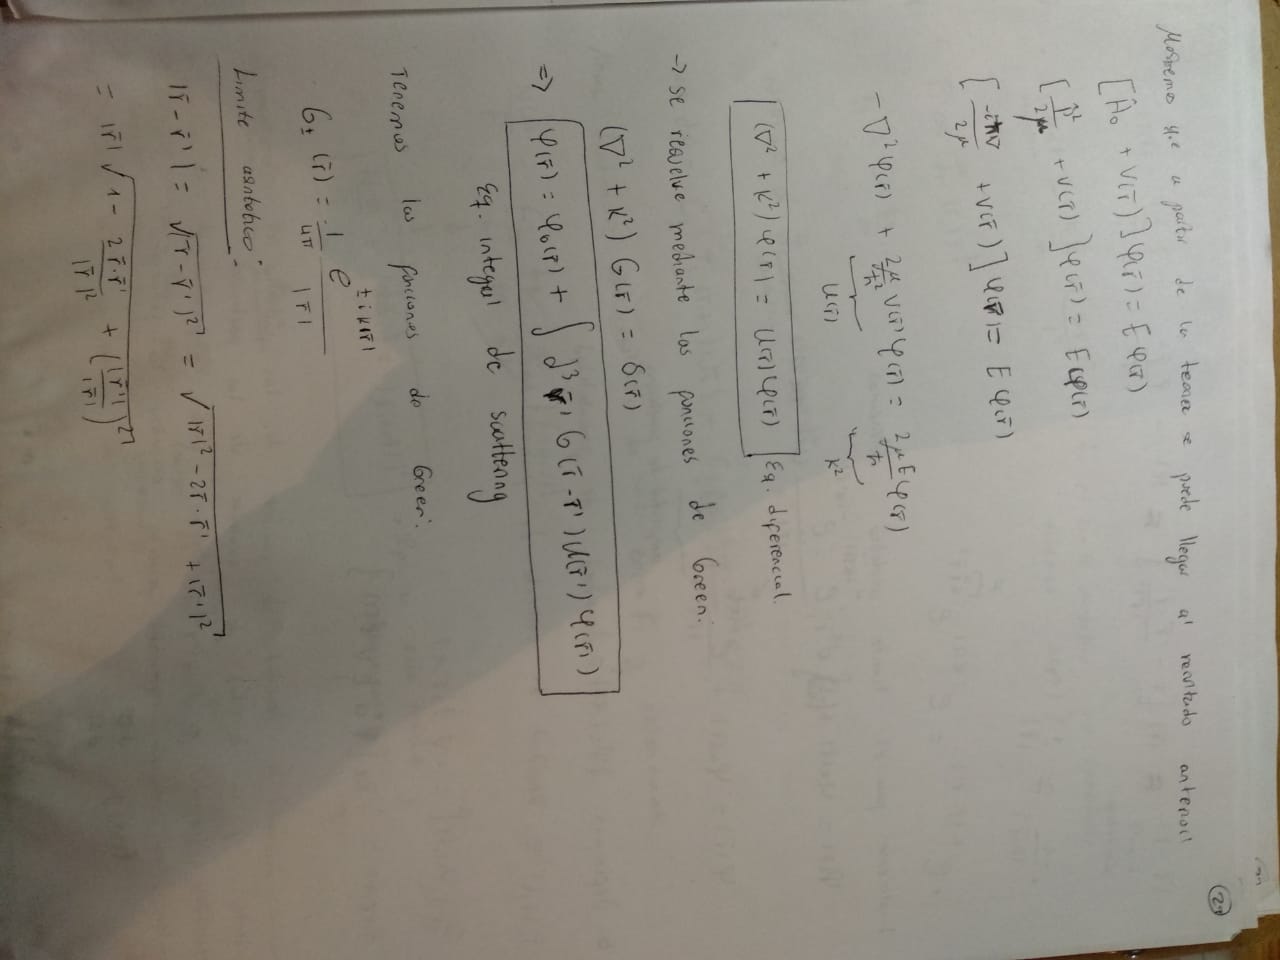 (21)
Mostremos que a partir de la teoría se puede llegar al resultado anterior:
[Ĥ₀ + V(r̄)] φ(r̄) = E φ(r̄)
[p̂²/2μ + V(r̄)] φ(r̄) = E φ(r̄)
[-iħ∇/2μ + V(r̄)] φ(r̄) = E φ(r̄)
-∇²φ(r̄) + 2μ/ħ² V(r̄) φ(r̄) = 2μ/ħ E φ(r̄)
U(r̄) k²
(∇² + k²) φ(r̄) = U(r̄) φ(r̄) Eq. diferencial.
-> se resuelve mediante las funciones de Green:
(∇² + k²) G(r̄) = δ(r̄)
=> φ(r̄) = φ₀(r̄) + ∫ d³r̄' G(r̄-r̄') U(r̄') φ(r̄')
Eq. integral de scattering
Tenemos las funciones de Green:
G±(r̄) = -1/4π e^(±ik|r̄|)/|r̄|
Limite asintótico:
|r̄-r̄'| = √(r̄-r̄')² = √(|r̄|² - 2r̄·r̄' + |r̄'|²)
= |r̄| √(1 - 2r̄·r̄'/|r̄|² + (|r̄'|/|r̄|)²)